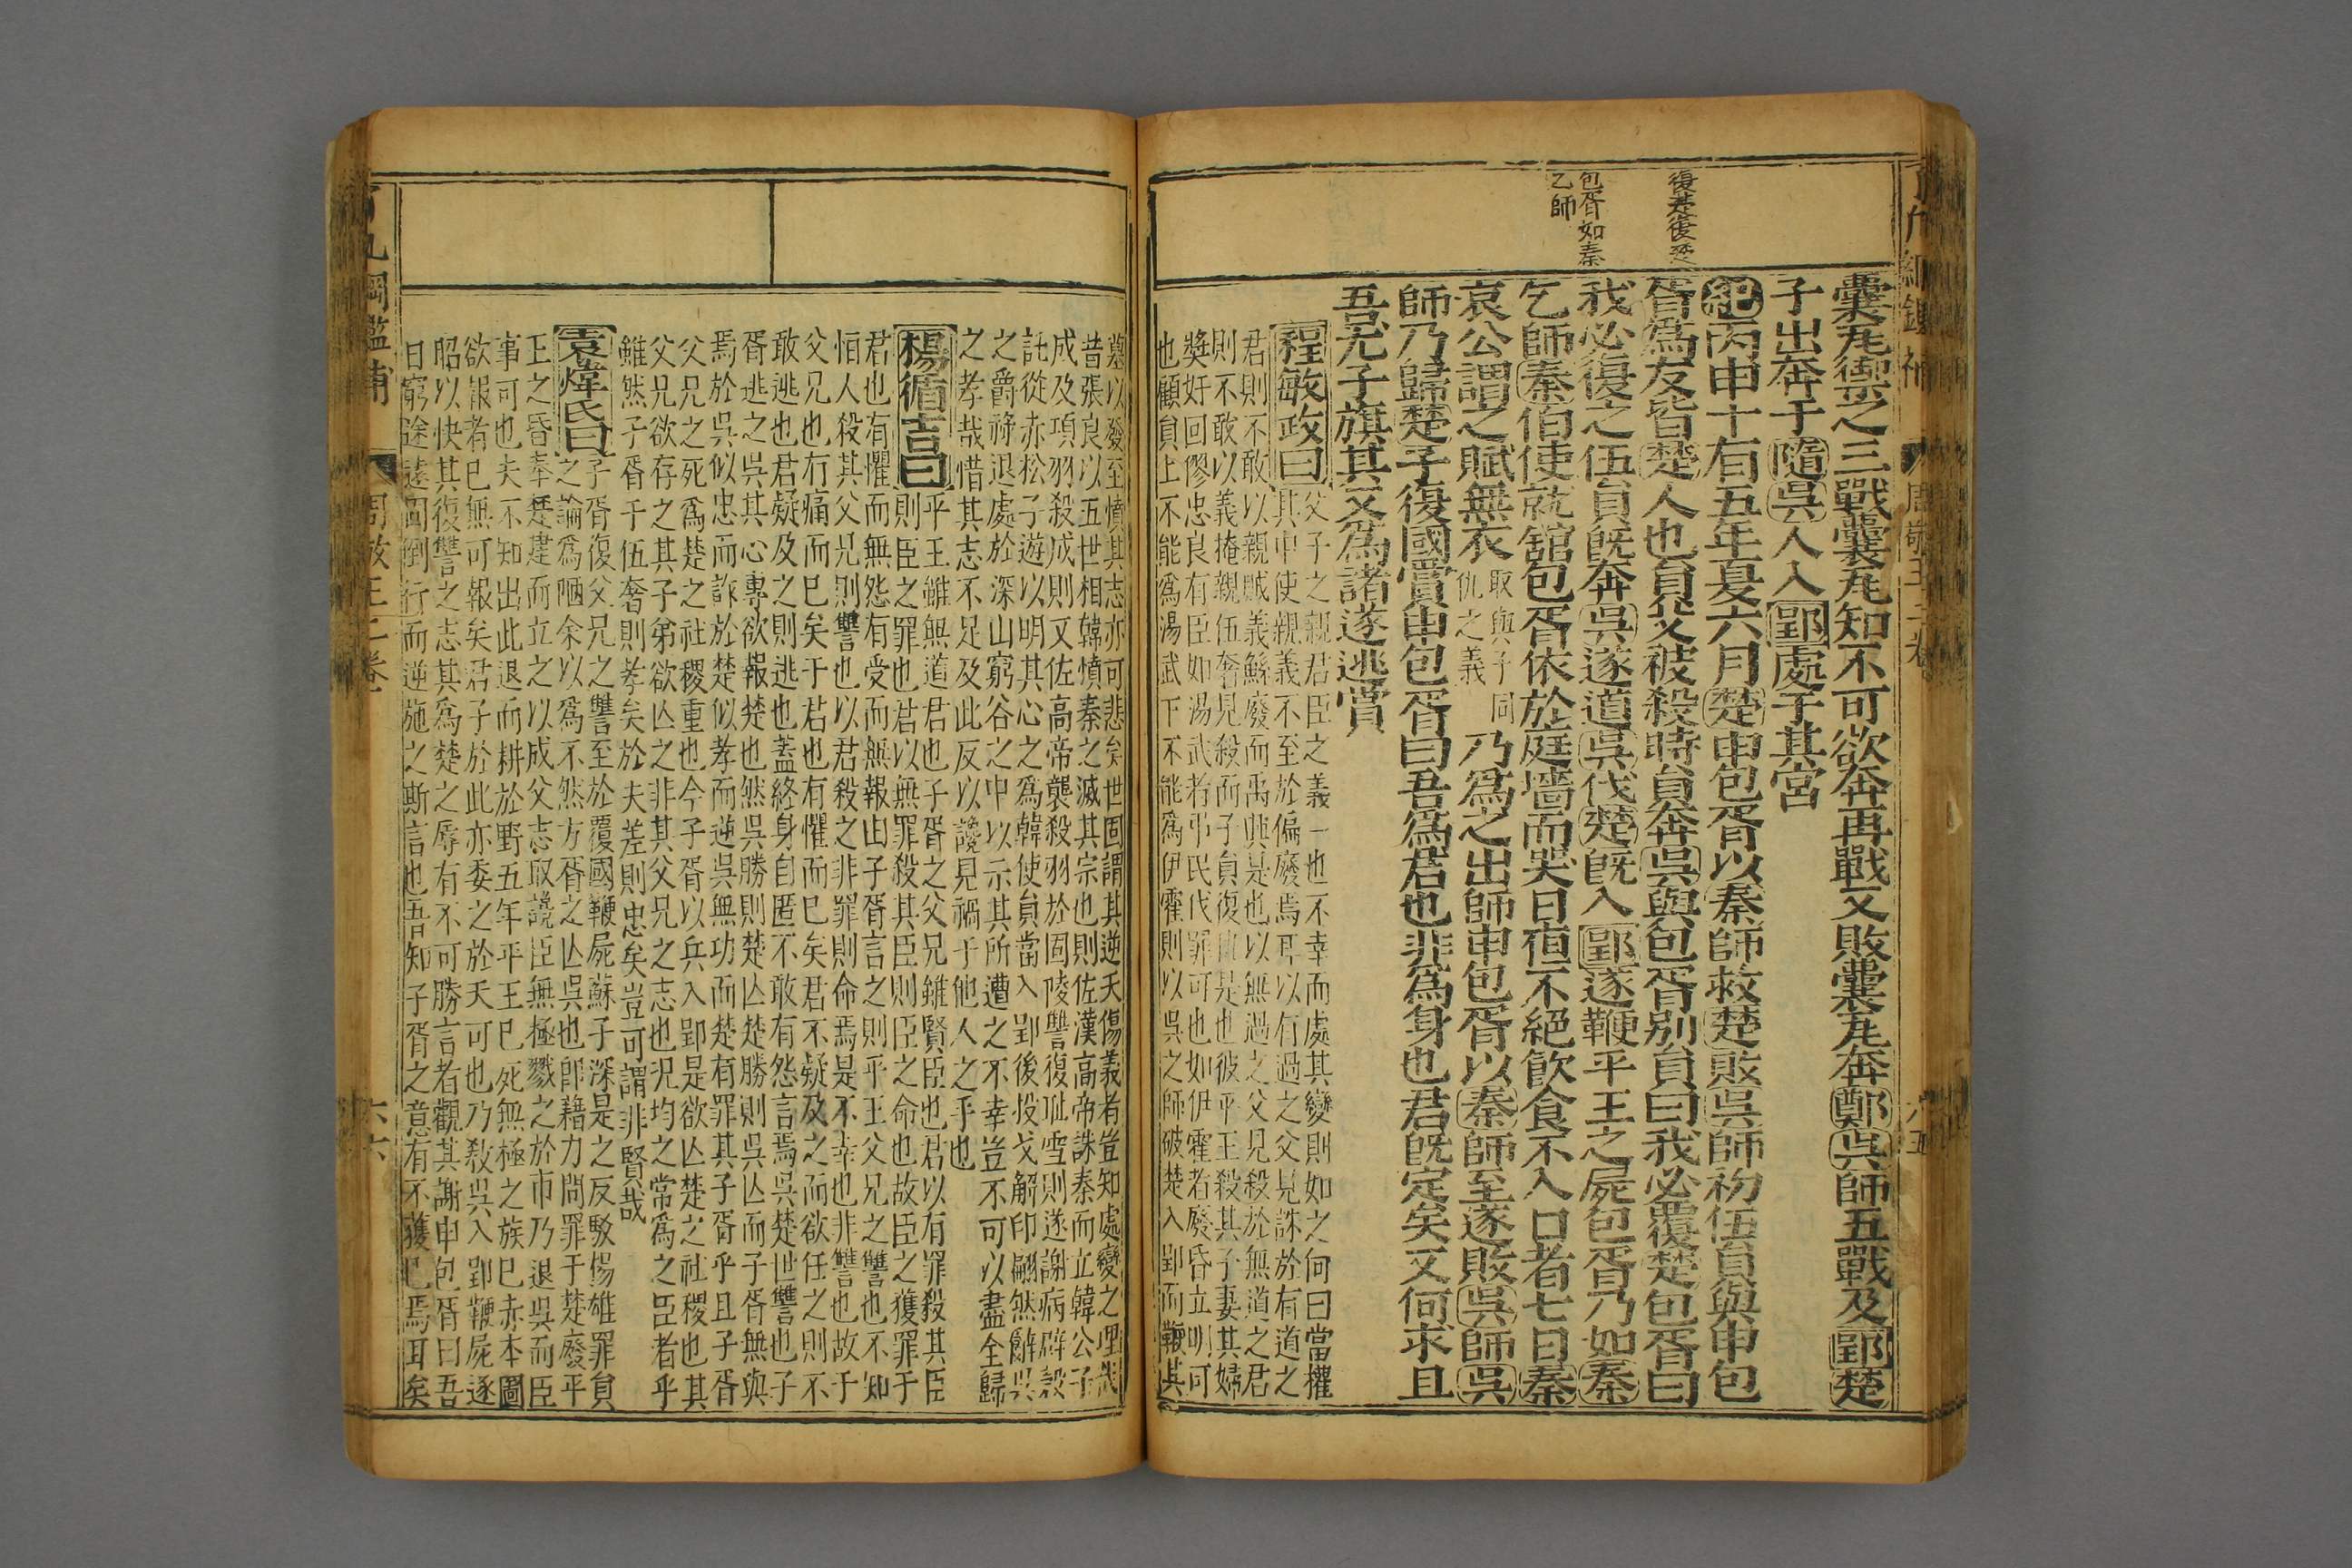 復楚復楚
包胥如秦
乞師
囊瓦禦之三戰囊瓦知不可欲奔再戰又敗囊瓦奔鄭吳師五戰及郢楚
子出奔于隨吳人入郢處子其宮
紀丙申十有五年夏六月楚申包胥以秦師救楚敗吳師初伍員與申包
胥爲友皆楚人也員父被殺時員奔吳與包胥别員曰我必覆楚包胥曰
我必復之伍員旣奔吳遂道吳伐楚旣入郢遂鞭平王之屍包胥乃如秦
乞師秦伯使就舘包胥依於庭墻而哭日夜不絕飲食不入口者七日秦
哀公謂之賦無衣取與子同仇之義乃爲之出師申包胥以秦師至遂敗吳師吳
師乃歸楚子復國賞申包胥曰吾爲君也非爲身也君旣定矣又何求且
吾尤子旗其又爲諸遂逃賞
程敏政曰父子之親君臣之義一也不幸而處其變則如之何曰當權
其中使親義不至於偏廢焉耳以有過之父見誅於有道之
君則不敢以親賊義鯀廢而禹興是也以無過之父見殺於無道之君
則不敢以義掩親伍奢見殺而子員復仇是也彼平王殺其子妻其婦
獎奸回僇忠良有臣如湯武者弔民伐罪可也如伊霍者廢昏立明可
也顧員上不能爲湯武下不能爲伊霍則以吳之師破楚入郢而鞭其
墓以發至憤其志亦可悲矣世固謂其逆天傷義者豈知處變之理哉
昔張良以五世相韓憤秦之滅其宗也則佐漢高帝誅秦而立韓公子
成及項羽殺成則又佐高帝襲殺羽於固陵讐復恥雪則遂謝病辟穀
託從赤松子遊以明其心之爲韓使員當入郢後投戈解印翩然辭吳
之爵祿退處於深山窮谷之中以示其所遭之不幸豈不可以盡全歸
之孝哉惜其志不足及此反以讒見禍于他人之手也
楊循吉曰平王雖無道君也子胥之父兄雖賢臣也君以有罪殺其臣
則臣之罪也君以無罪殺其臣則臣之命也故臣之獲罪于
君也有懼而無怨有受而無報由子胥言之則平王父兄之讐也不知
怕人殺其父兄則讐也以君殺之非罪則命焉是不幸也非讐也故于
父兄也有痛而已矣于君也有懼而已矣君不疑及之而欲任之則不
敢逃也君疑及之則逃也蓋終身自匿不敢有怨言焉吳楚世讐也子
胥逃之吳其心專欲報楚也然吳勝則楚亾楚勝則吳亾而子胥無與
焉於吳似忠而詐於楚似孝而逆吳無功而楚有罪其子胥乎且子胥
父兄之死爲楚之社稷重也今子胥以兵入郢是欲亾楚之社稷也其
父兄欲存之其子弟欲亾之非其父兄之志也況均之常爲之臣者乎
雖然子胥于伍奢則孝矣於夫差則忠矣豈可謂非賢哉
袁煒氏曰子胥復父兄之讐至於覆國鞭屍蘇子深是之反駁楊雄罪員
之論爲陋余以爲不然方胥之亾吳也卽藉力問罪于楚廢平
王之昏奉楚建而立之以成父志取讒臣無極戮之於市乃退吳而臣
事可也夫不知出此退而耕於野五年平王已死無極之族已赤本圖
欲報者已無可報矣君子於此亦委之於天可也乃敎吳入郢鞭屍遂
昭以快其復讐之志其爲楚之辱有不可勝言者觀其謝申包胥曰吾
日窮途遠固倒行而逆施之斯言也吾知子胥之意有不獲已焉耳矣
周敬王二卷
六六